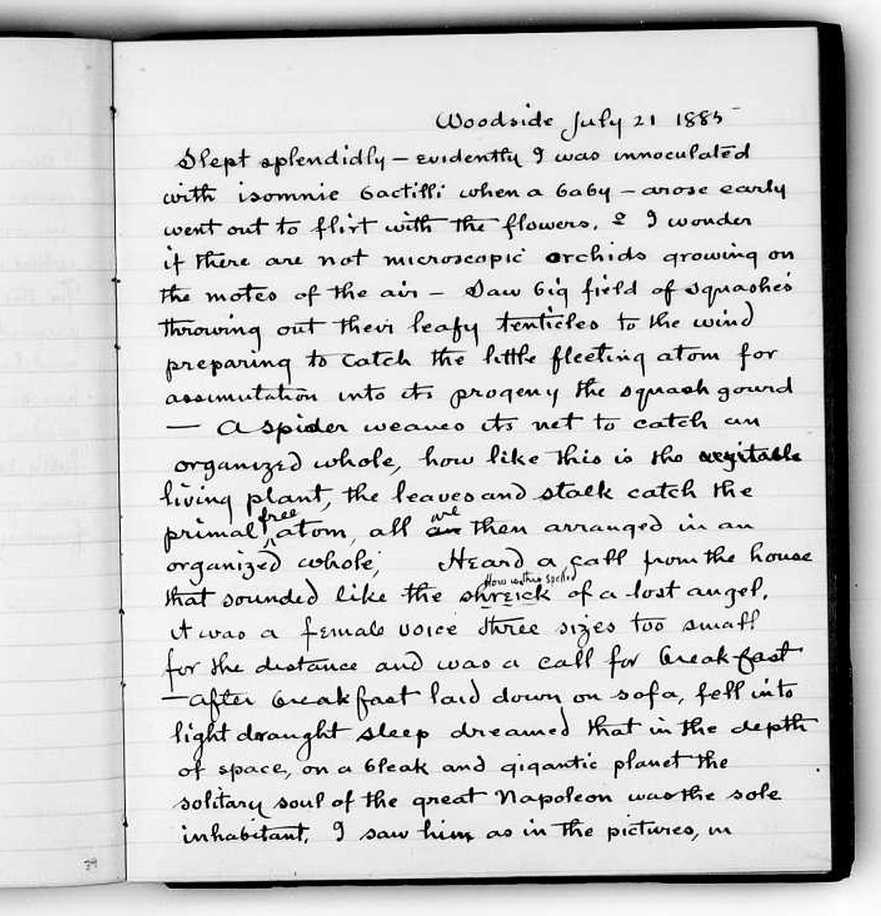 Woodside July 21 1885
Slept splendidly — evidently I was innoculated
with isomnic bactilli when a baby — arose early
went out to flirt with the flowers, & I wonder
if there are not microscopic orchids growing on
the motes of the air — Saw big field of squashes
throwing out thevi leafy tenticles to the wind
preparing to catch the little fleeting atom for
assimutation into its progeny the squash gourd
— A spider weaves its net to catch an
organized whole, how like this is the vegitable
living plant, the leaves and stalk catch the
primal, free atom, all are then arranged in an
organized whole; Heard a call from the house
How is this spelled
that sounded like the shreick of a lost angel,
it was a female voice three sizes too small
for the distance and was a call for breakfast
— after breakfast laid down on sofa, fell into
light draught sleep dreamed that in the depth
of space, on a bleak and gigantic planet the
solitary soul of the great Napoleon was the sole
inhabitant, I saw him as in the pictures, in